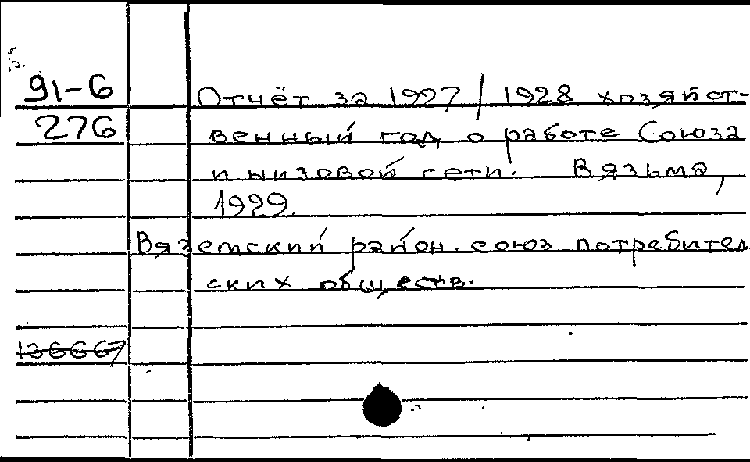 91-6 Отчёт за 1927/1928 хозяйст-
276 венный год о работе Союза
и низовой сети. Вязьма,
1929.
Вяземский район. союз потребител
ских обществ.
136667